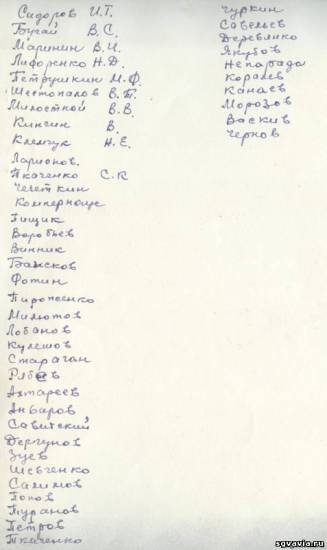 Сидоров И.Т.
Бугай В.С.
Маринин В.И.
Лифоренко Н.Д.
Петрушкин М.Ф.
Шестопалов В.Т.
Милостной В.В.
Кинсин В.
Клемчук Н.Е.
Ларионов.
Ткаченко С.К
Чечеткин
Компернощс
Гищик
Воробьев
Винник
Бажсков
Фотин
Пиропенко
Милютов
Лобанов
Кулешов
Стараган
Рябов
Ахтареев
Анбаров
Савитский
Дергунов
Зуев
Шевченко
Салимов
Попов
Пуранов
Петров
Ткаченко
Чуркин
Савельев
Деревянко
Якубов
Непарада
Королев
Канаев
Морозов
Васкив
Чернов
sgvavia.ru